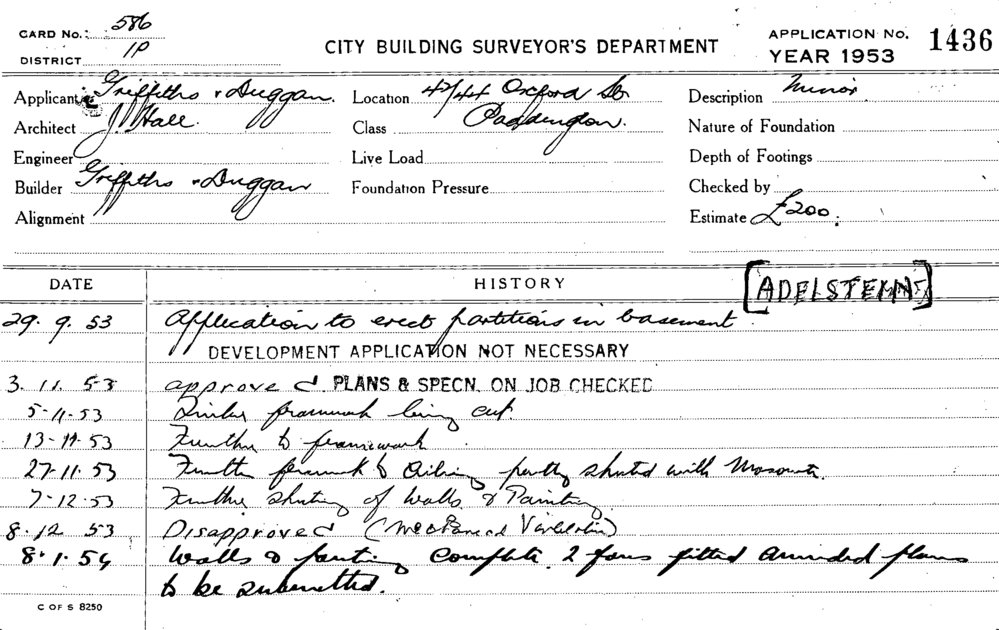 CARD No.: 586
DISTRICT 1P
CITY BUILDING SURVEYOR'S DEPARTMENT
APPLICATION No. 1436
YEAR 1953
Applicant Griffiths & Duggan.
Location 42/44 Oxford St
Description Minor
Architect J Hall.
Class Paddington.
Nature of Foundation
Engineer
Live Load
Depth of Footings
Builder Griffiths & Duggan
Foundation Pressure
Checked by
Alignment
Estimate £200.
DATE HISTORY
[ADELSTEINS]
29. 9. 53 Application to erect partitions in basement
DEVELOPMENT APPLICATION NOT NECESSARY
3. 11. 53 approved PLANS & SPECN. ON JOB CHECKED
5-11-53 Timber framework being cut.
13-11-53 Further to framework.
27-11-53 Further framework to Ceiling partly sheeted with Masonite.
7-12-53 Further sheeting of walls & Painting
8.12 53 Disapproved (Mechanical Ventilation)
8.1.54 Walls & painting complete 2 fans fitted amended plans
to be submitted.
C OF S 8250